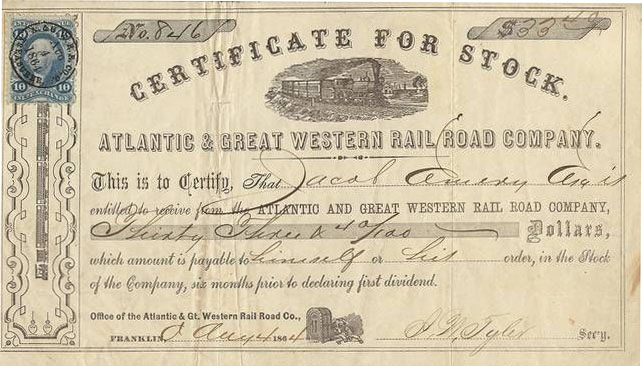 No. 846
$33 42
CERTIFICATE FOR STOCK.
ATLANTIC & GREAT WESTERN RAIL ROAD COMPANY.
This is to Certify, That Jacob Amery Asg is
entitled to receive from the ATLANTIC AND GREAT WESTERN RAIL ROAD COMPANY,
Thirty Three & 42/100 Dollars,
which amount is payable to himself or his order, in the Stock
of the Company, six months prior to declaring first dividend.
Office of the Atlantic & Gt. Western Rail Road Co.,
FRANKLIN, Aug 1864
J W Tyler Secy.
10 10